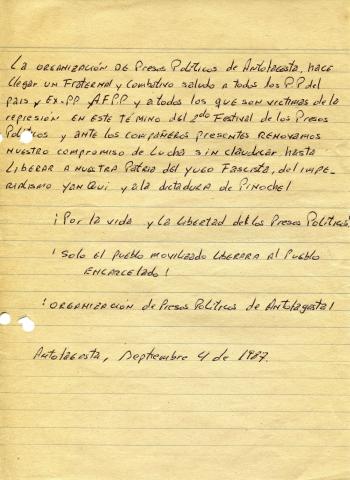 La ORGANIZACIÓN DE Presos Políticos de Antofagasta, hace
llegar un Fraternal y Combativo saludo a todos los PP del
pais y Ex-PP, AFPP y a todos los que son victimas de la
represión en este término del 2do Festival de los Presos
Políticos y ante los compañeros presentes renovamos
nuestro compromiso de Lucha sin claudicar hasta
Liberar a nuestra Patria del yugo Fascista, del impe-
rialismo yanqui y a la dictadura de Pinochet
¡Por la vida y la Libertad de los Presos Politicos!
¡Solo el pueblo movilizado liberara al Pueblo
encarcelado!
¡ORGANIZACIÓN de Presos Políticos de Antofagasta!
Antofagasta, Septiembre 4 de 1987.